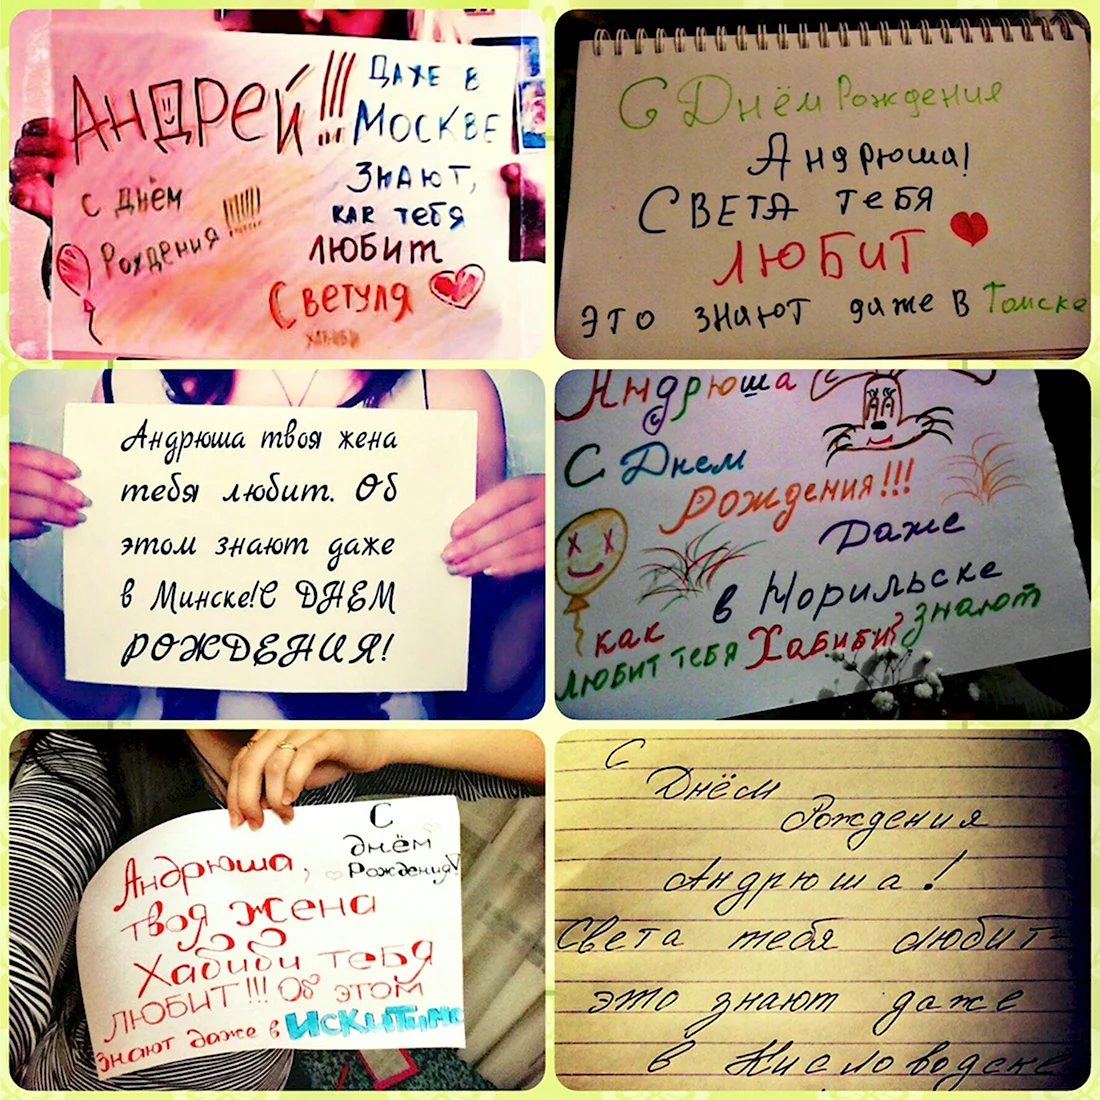 АНДРЕЙ!!!
ДАЖЕ В
МОСКВЕ
ЗНАЮТ,
КАК ТЕБЯ
ЛЮБИТ
Светуля
ХАБИБИ
С ДНЁМ
Рождения!!!!!!!
С Днём Рождения
Андрюша!
СВЕТА ТЕБЯ
ЛЮБИТ
ЭТО знают даже в Томске
Андрюша твоя жена
тебя любит. Об
этом знают даже
в Минске!С ДНЕМ
РОЖДЕНИЯ!
Андрюша
С Днем
Рождения!!!
Даже
в Норильске
знают
как
любит тебя Хабиби?
С
днём
Рождения!
Андрюша,
твоя жена
Хабиби тебя
ЛЮБИТ!!! Об этом
знают даже в ИСКИТИМе
С
Днём
Рождения
Андрюша!
Света тебя любит-
это знают даже
в Кисловодске